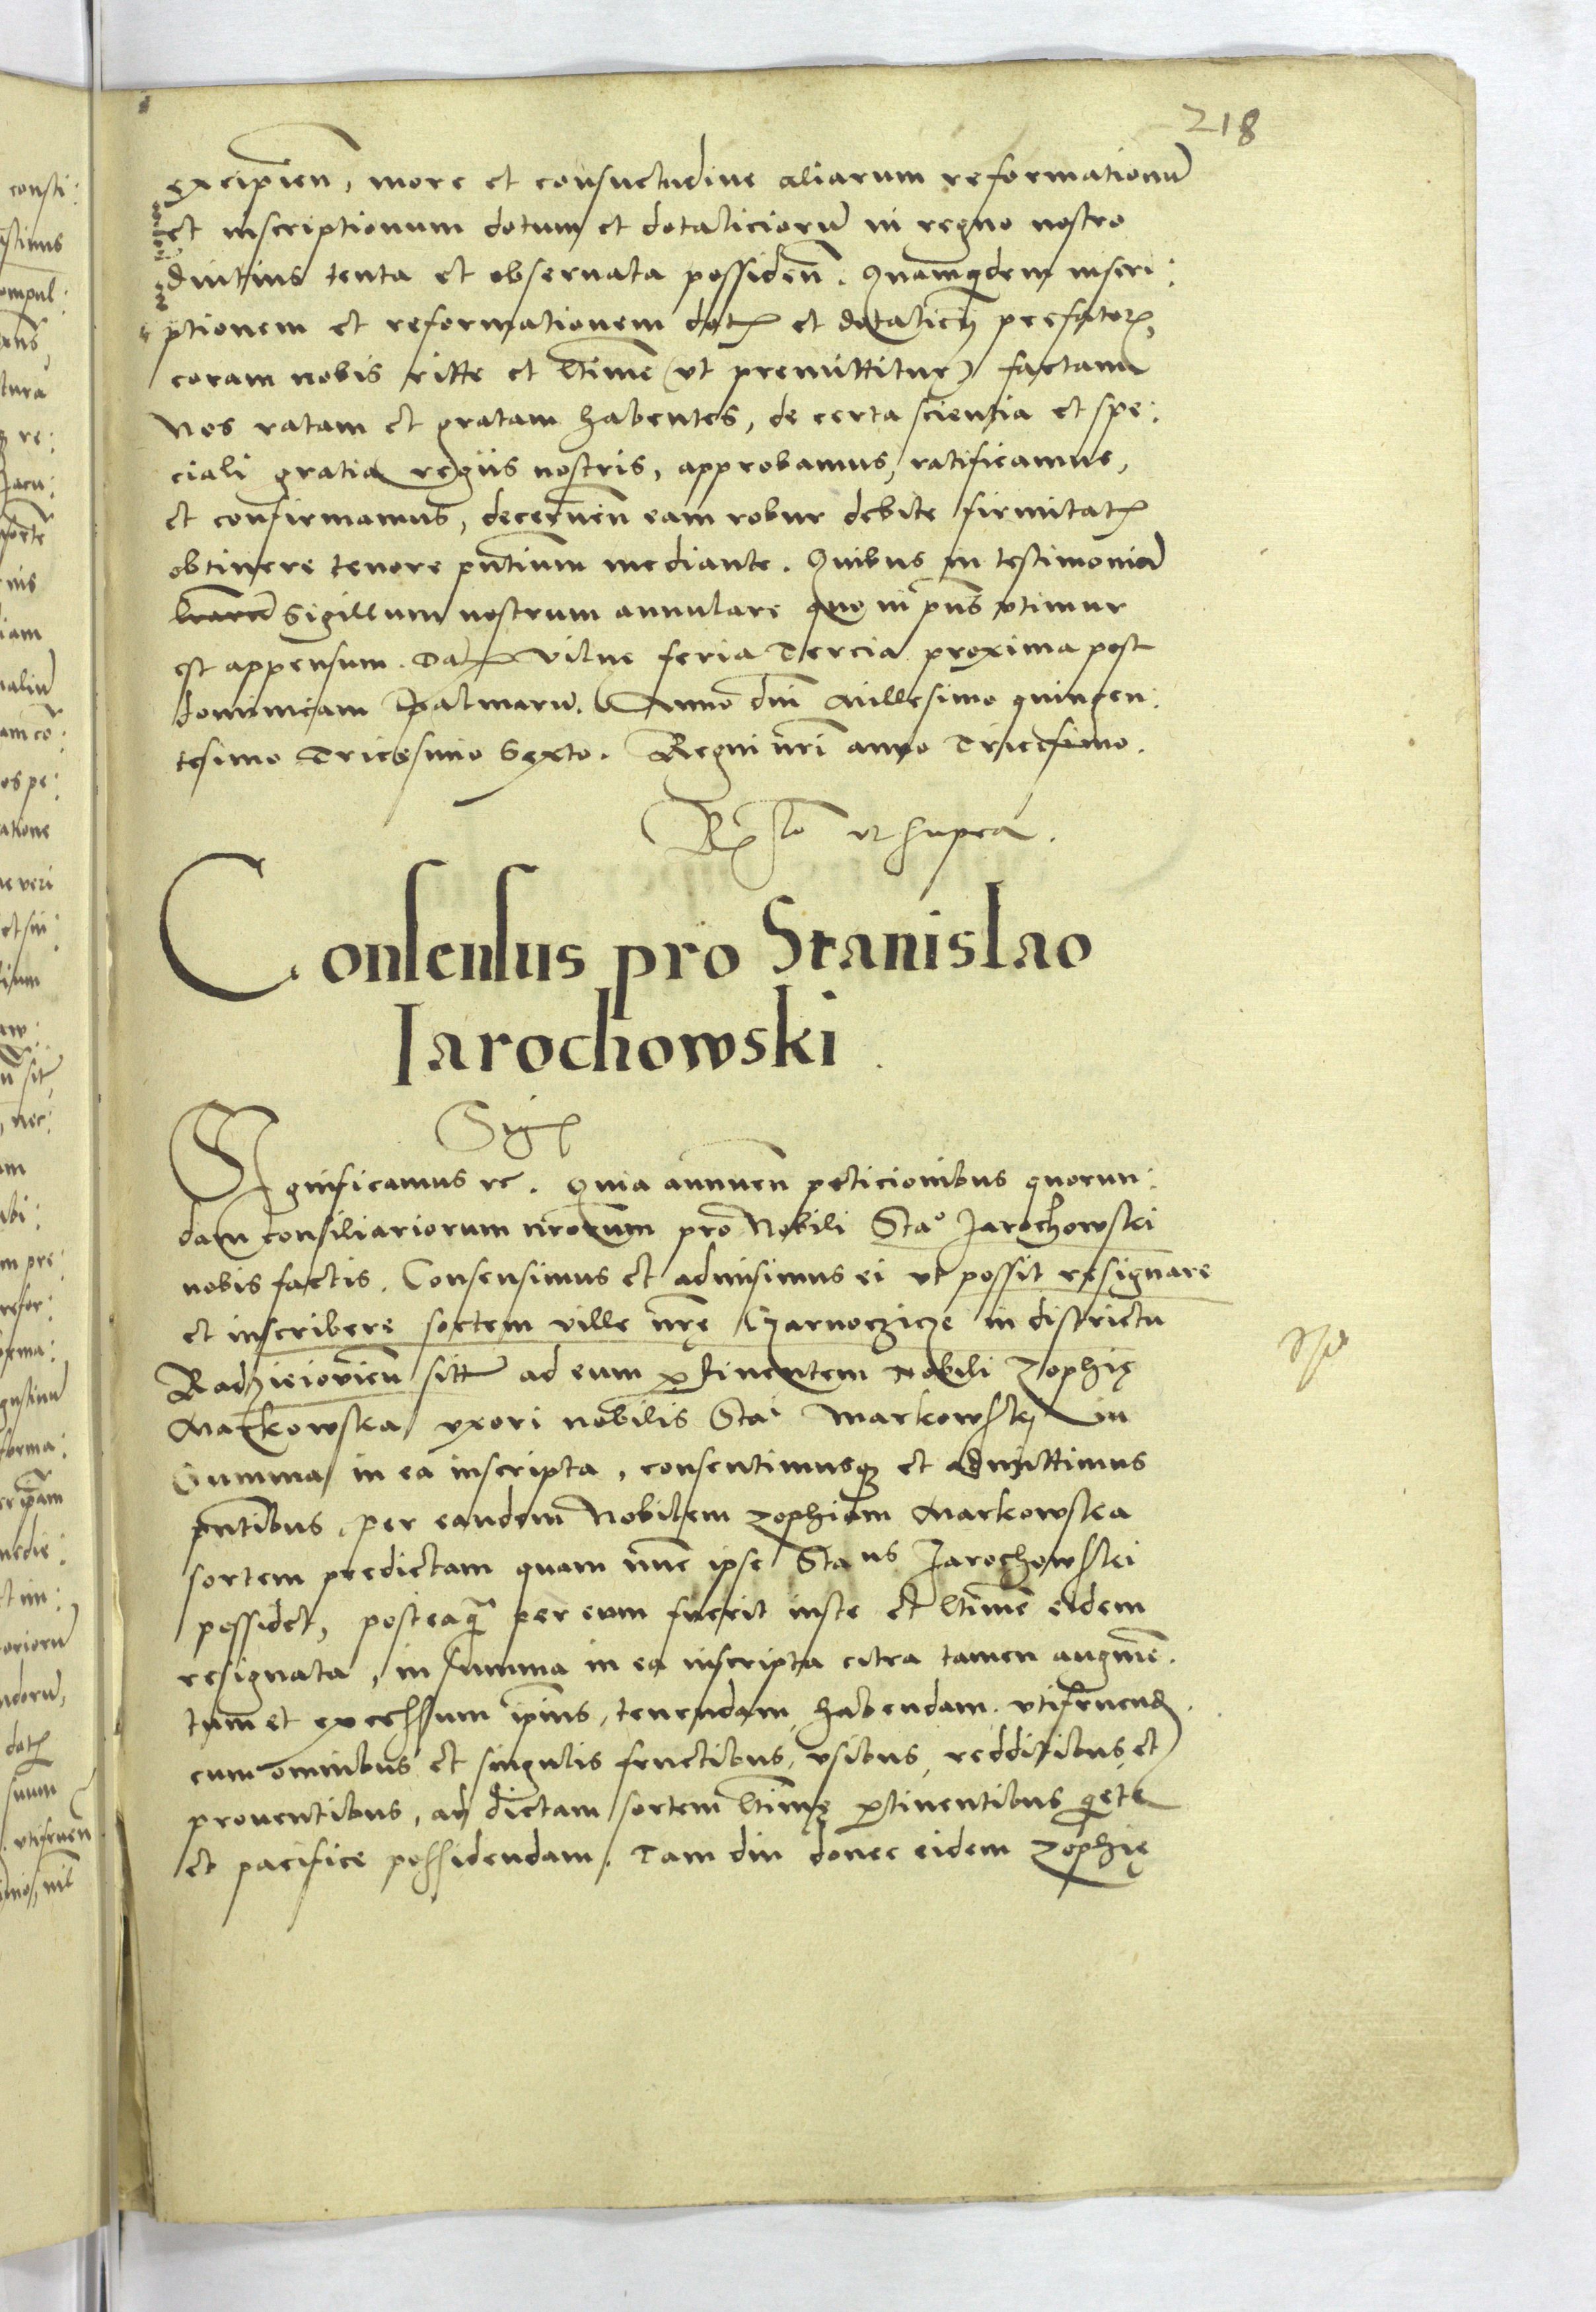 218
excipien, more et consuetudine aliarum reformationu
et inscriptionum dotum et dotaliciorū in regno nostro
diutius tenta et obseruata possideñ. Quamqdem inscri:
ptionem et reformationem dotꝭ et dotalicij prefatorꝭ,
coram nobis ritte et ltime (vt premittitur) factam
Nos ratam et gratam habentes, de certa scientia et spe:
ciali gratia regiis nostris, approbamus, ratificamus,
et confirmamus, decerneñ eam robur debite firmitatꝭ
obtinere tenore pñtium mediante. Quibus in testimoniū
Sigillum nostrum annulare quo in pñs vtimur
est appensum. Datꝭ Vilne feria Tercia proxima post
dominicam Palmarū. Anno dni Millesimo quingen:
tesimo Tricesimo Sexto. Regni nri anno Tricesimo.
Rº ut supra.
Consensus pro Stanislao
Iarochowski.
Sigꝭ
Significamus rc. Quia annueñ peticionibus quorun:
dam consiliariorum nrorum pro Nobili Sta° Jarochowski
nobis factis. Consensimus et admisimus ei vt possit resignare
et inscribere sortem ville nrę Czarnoczicze in districtu
Radzieiovieñ sitā ad eum ꝑtinentem Nobili Zophię
Markowska vxori nobilis Stai Markowskj in
Summa in ea inscripta, consentimusqꝫ et admittimus
pñtibus, per eandem Nobilem Zophiam Markowska
sortem predictam quam nunc ipse Staus Jarochowski
possidet, posteaq̃ per eum fuerit iuste et ltime eidem
resignata, in summa in ea inscripta citra tamen augmē.
tum et excessum ipius, tenendam, habendam. vtifruendꝭ.
cum omnibus et singulis fructibus, vsibus, redditibus et
prouentibus, ad dictam sortem ltime ꝑtinentibus qete
et pacifice possidendam. Tam diu donec eidem Zophię